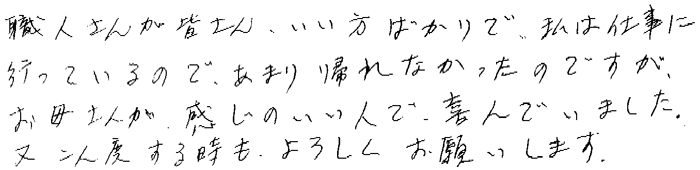 職人さんが皆さん、いい方ばかりで、私は仕事に
行っているので、あまり帰れなかったのですが、
お母さんが、感じのいい人で、喜んでいました。
又こん度する時も、よろしくお願いします。